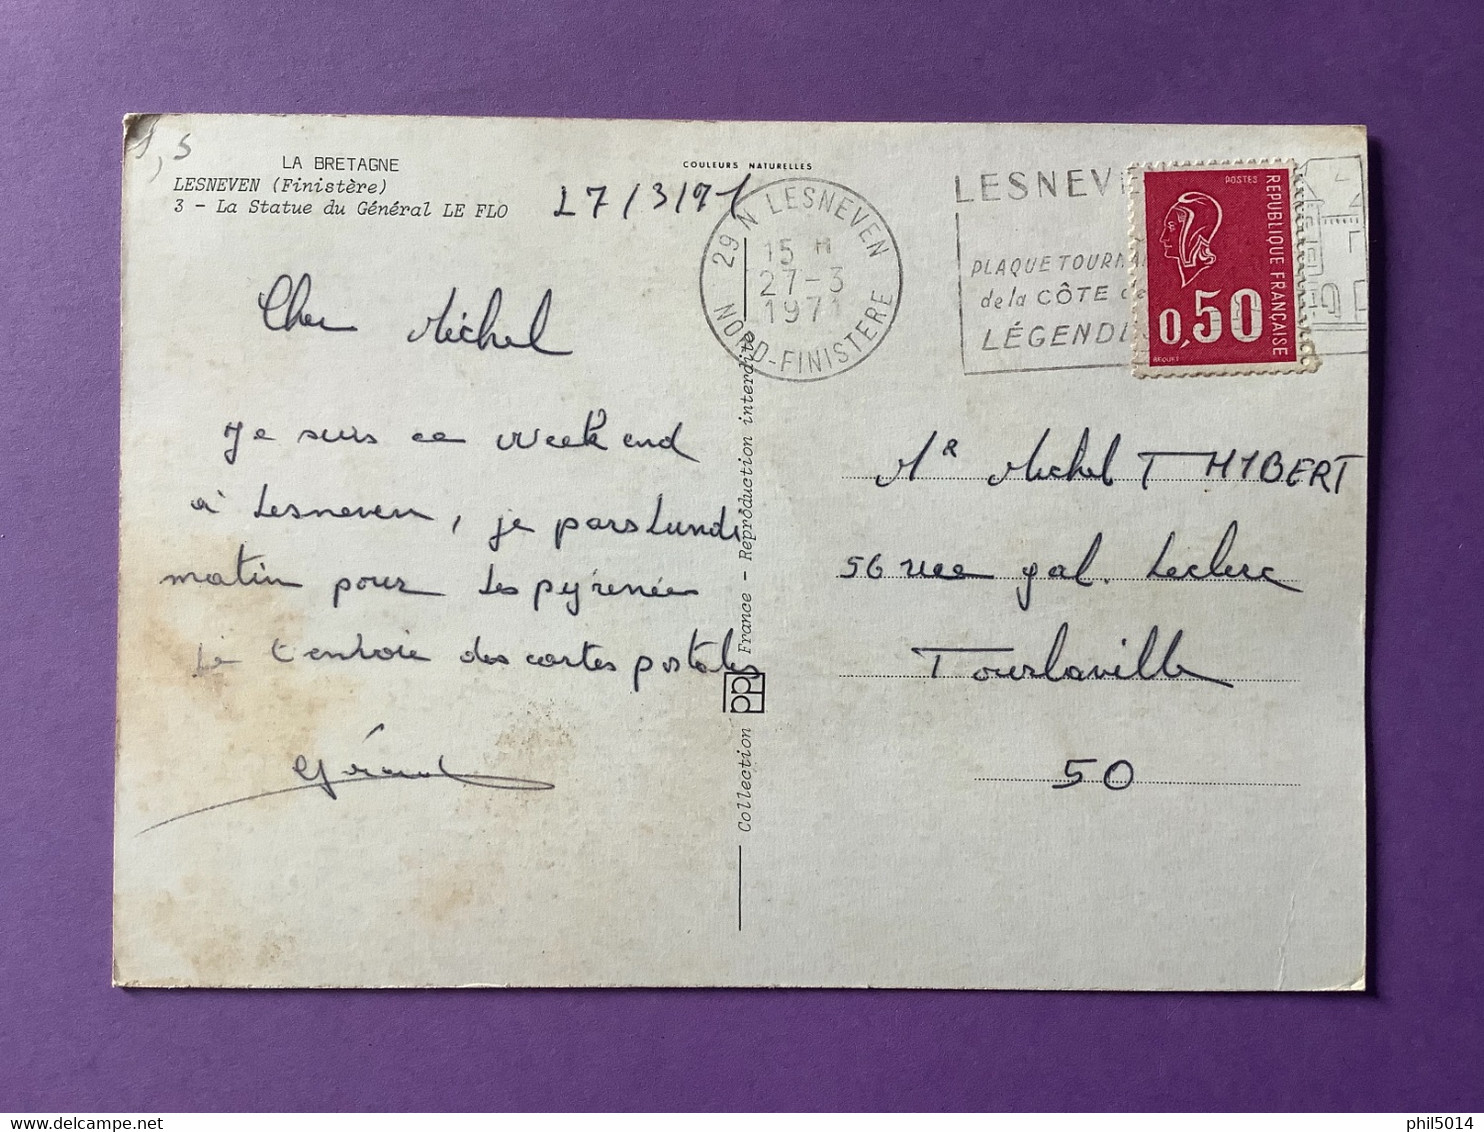 1,5
LA BRETAGNE
LESNEVEN (Finistère)
3 - La Statue du Général LE FLO
COULEURS NATURELLES
27/3/71
Cher Michel
Je suis ce week end
à Lesneven, je pars Lundi
matin pour les pyrénées
Je t'envoie des cartes postales
Gérard
Collection pp France - Reproduction interdite
29 N LESNEVEN
15 H
27-3
1971
NORD-FINISTERE
LESNEVE
PLAQUE TOURNA
de la CÔTE de
LÉGENDES
POSTES
REPUBLIQUE FRANÇAISE
0,50
BEQUET
Mr Michel THYBERT
56 rue gal. Leclerc
Tourlaville
50
phil5014